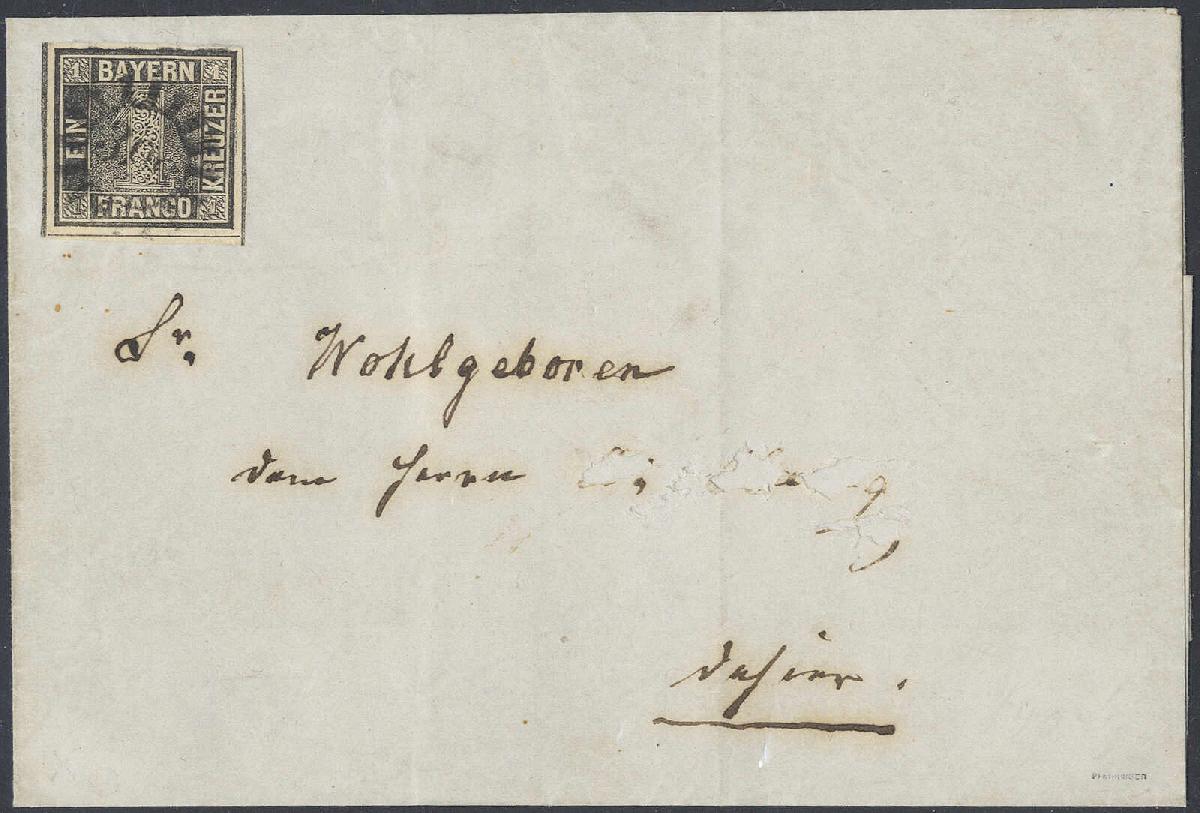 1 BAYERN 1
EIN 1 KREUZER
1 FRANCO 1
Sr. Wohlgeboren
dem Herrn
dahier.